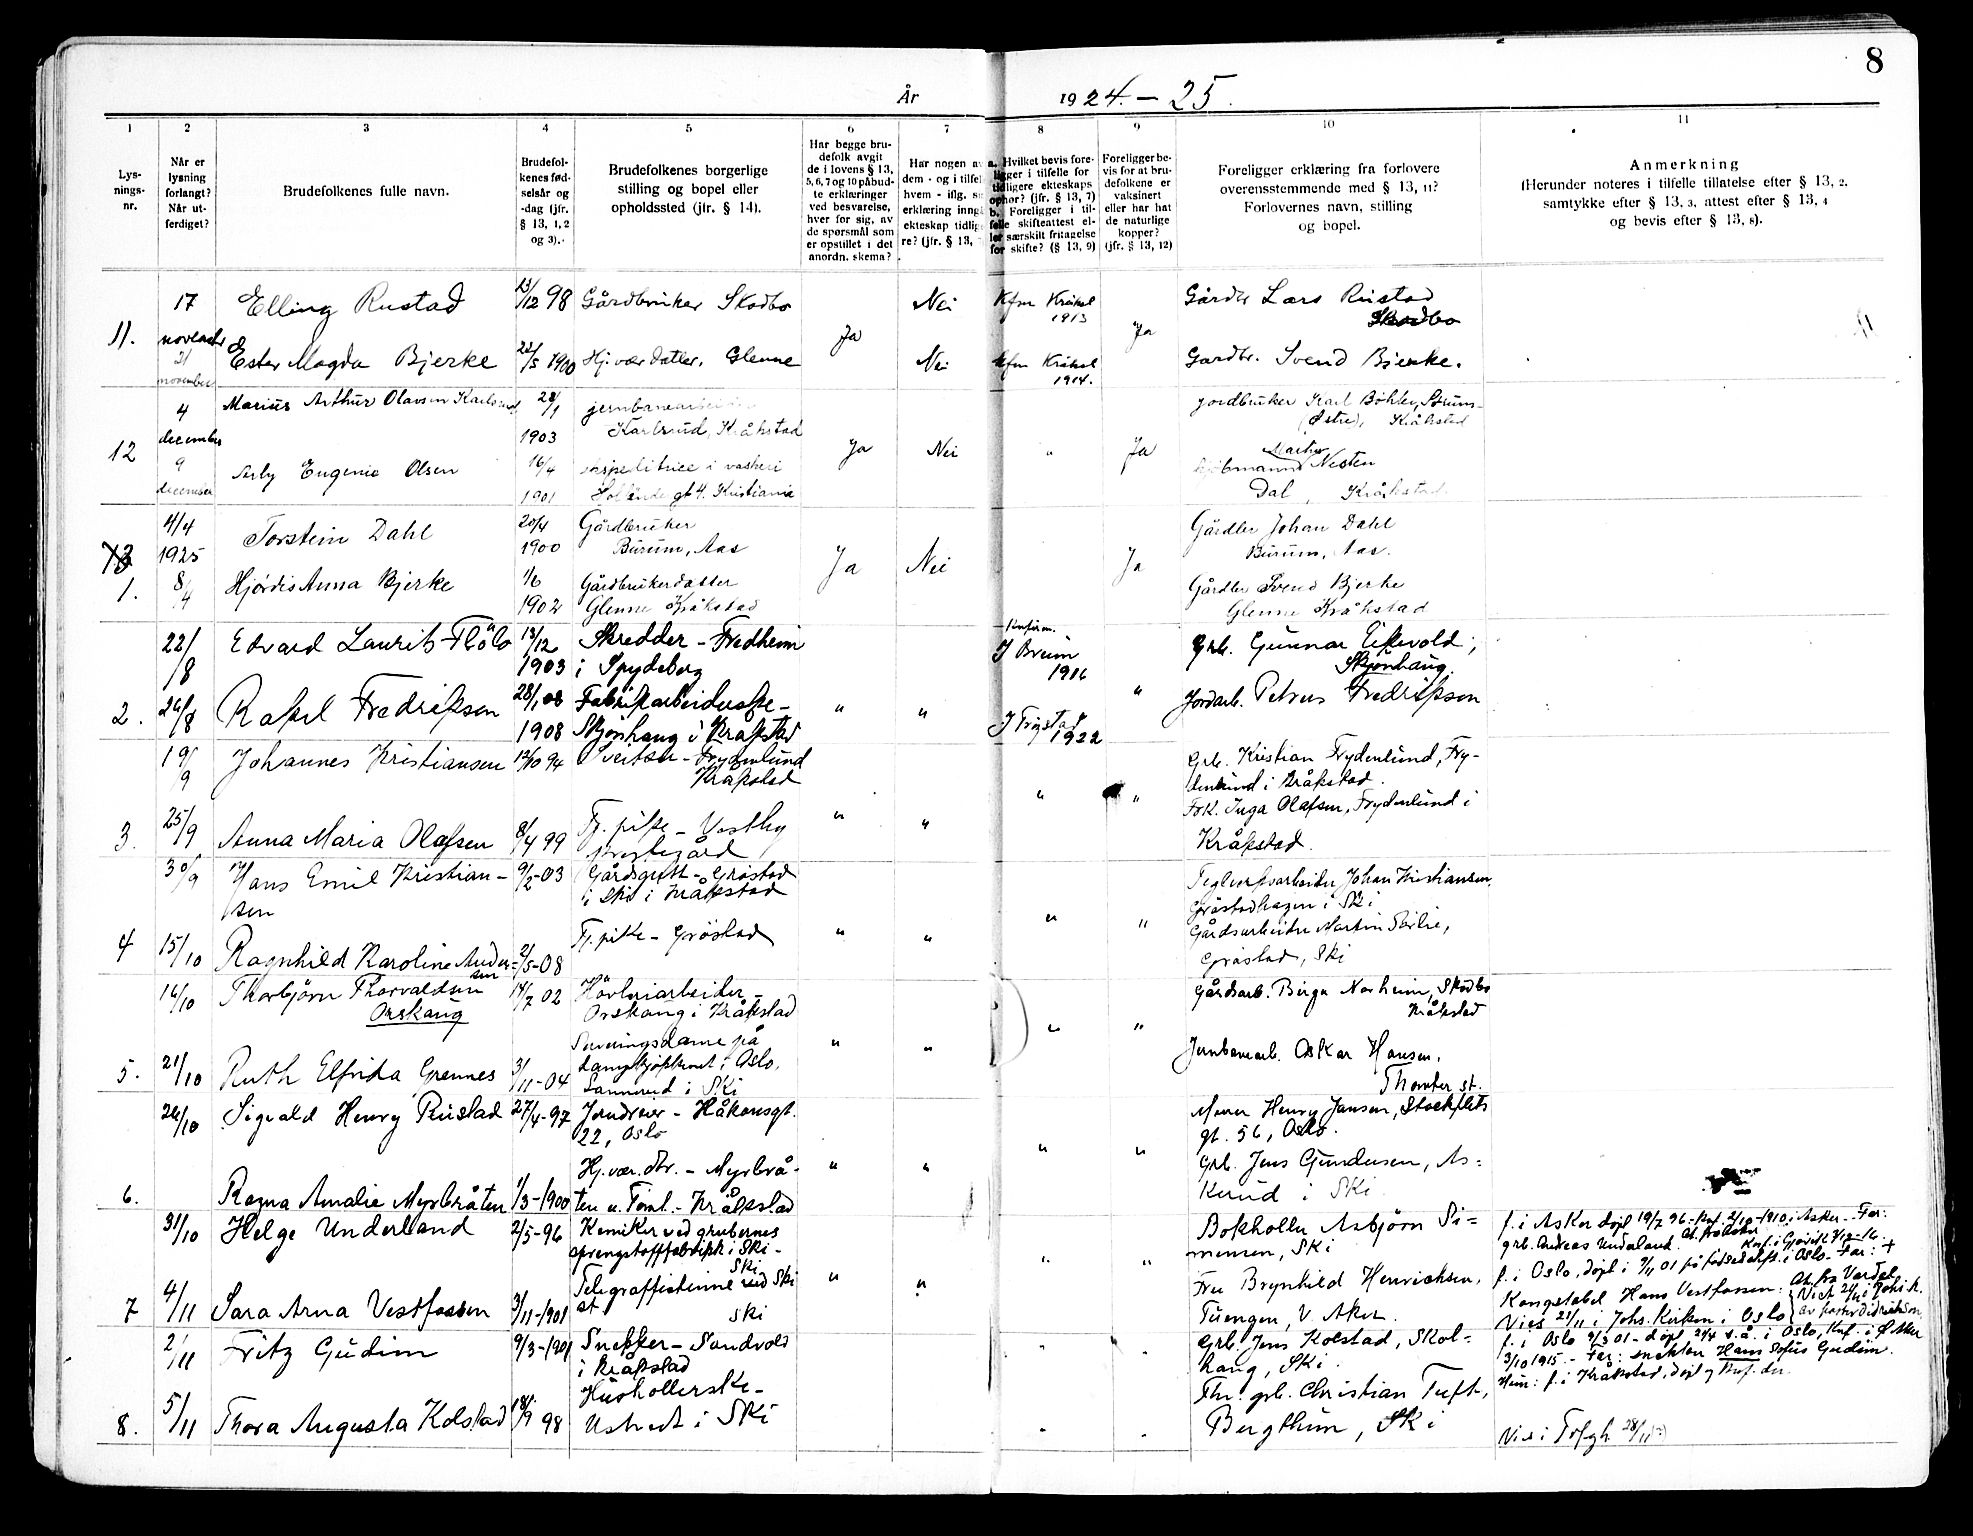 8
År 1924. – 25.
1 2 3 4 5 6 7 8 9 10 11
Lys-
nings-
nr.
Når er
lysning
forlangt?
Når ut-
ferdiget?
Brudefolkenes fulle navn.
Brudefol-
kenes fød-
selsår og
-dag (jfr.
§ 13, 1, 2
og 3).
Brudefolkenes borgerlige
stilling og bopel eller
opholdssted (jfr. § 14).
Har begge bru-
defolk avgit
de i lovens § 13,
5, 6, 7 og 10 påbud-
te erklæringer
ved besvarelse,
hver for sig, av
de spørsmål som
er opstillet i det
anordn. skema?
Har nogen av
dem - og i tilfel
hvem - iflg. s
erklæring inngå
ekteskap tidlig
re? (jfr. § 13,
a. Hvilket bevis fore-
ligger i tilfelle for
tidligere ekteskaps
ophør? (jfr. § 13, 7)
b. Foreligger i til-
felle skifteattest el-
ler særskilt fritagelse
for skifte? (§ 13, 9)
Foreligger be-
vis for at bru-
defolkene er
vaksinert
eller har hat
de naturlige
kopper?
(jfr. § 13, 12)
Foreligger erklæring fra forlovere
overensstemmende med § 13, 11?
Forlovernes navn, stilling
og bopel.
Anmerkning
(Herunder noteres i tilfelle tillatelse efter § 13, 2.
samtykke efter § 13, 3, attest efter § 13, 4
og bevis efter § 13, 8).
11.
17
november
21
november
Elling Rustad
23/12 98
Gårdbruker Skodbo
Ja
Nei
Kfm Kråkst
1913
Ja
Gårdbr Lars Rustad
Skodbo
Ester Magda Bjerke
22/5 1900
Hj. vær. datter, Glenne
Nei
Kfm Kråkst
1914.
Gardbr. Svend Bjerke.
12
4
december
9
december
Marius Arthur Olavsen Karlsrud
28/1
1903
jernbanearbeider
Karlsrud, Kråkstad
Ja
Nei
"
Ja
jordbruker Karl Böhler, Sörums-
(Østre), Kråkstad
Arly Eugenie Olsen
16/4
1901
ekspeditrice i vaskeri
gt 4. Kristiania
Martin Nesten
Dal, Kråkstad
13
1.
4/4
1925
8/4
Torstein Dahl
20/4
1900
Gårdbruker
Burum, Aas
Ja
Nei
Ja
Gårdbr Johan Dahl
Burum, Aas.
Hjördis Anna Bjerke
1/6
1902
Gårdbrukerdatter
Glenne Kråkstad
Gårdbr Svend Bjerke
Glenne Kråkstad
2.
22/8
26/8
Edvard Laurits Flölo
13/12
1903
Skredder – Fredheim
i Spydeberg
"
"
Konfirm.
I Breim
1916
"
Grb. Gunnar Eikevold;
Skjönhaug.
Rakel Fredriksen
28/1 08
1908
Fabrikarbeiderske –
Skjönhaug i Kråkstad
I Trøgstad
1922
Jordarb. Petrus Fredriksen
3.
19/9
25/9
Johannes Kristiansen
12/10 94
Sveitser – Frydenlund
Kråkstad
"
"
"
"
Grb. Kristian Frydenlund, Fry-
denlund i Kråkstad.
Anna Maria Olafsen
8/4 99
Tj. pike – Vestby
prestegård
Frk. Inga Olafsen, Frydenlund i
Kråkstad.
4
30/9
15/10
Hans Emil Kristian-
sen
9/2-03
Gårdsgutt – Gröstad
i Ski i Kråkstad
"
"
"
"
Teglverksarbeider Johan Kristiansen,
Gröstadhagen i Ski
Ragnhild Karoline Ander-
sen
2/5-08
Tj. pike – Gröstad
Gårdsarbeider Martin
Gröstad, Ski
5.
16/10
21/10
Thorbjörn Thorvaldsen
Orskaug
14/7 02
Hövleriarbeider –
Orskaug i Kråkstad
"
"
"
"
Gårdsarb. Birger Norheim, Skodbo
Kråkstad
Ruth Elfrida Grennes
3/11-04
Serveringsdame på
dampkjökkenet i Oslo,
Sanderud i Ski
Jernbanearb. Oskar Hansen,
Thomter st.
6.
26/10
Sigvald Henry Rustad
27/4-97
Håkonsgt.
22, Oslo
"
"
"
"
Murer Henry Jansen, Stockflets
gt. 56, Oslo.
Ragna Amalie Myrbråten
1/3-1900
Hj. vær. dtr. – Myrbrå-
ten u. Tomt. – Kråkstad
Grb. Jens Gundersen, As-
kerud i Ski
7
31/10
4/11
Helge Underland
2/5-96
Kemiker ved grubernes
sprengstofffabrikk i Ski –
Ski
"
"
"
"
Bokholder Asbjörn Si-
monsen, Ski
f. i Asker döpt 19/7 96 – konf. 2/10-1910 i Asker – Far:
grb. Andreas Underland.
Sara Arna Vestfossen
3/11-1901
Telegrafistinne ved Ski
st
Ski
Fru Brynhild Henrichsen,
Tuengen, V. Aker.
f. i Oslo, döpt i 9/11 01 på födselsstift. i Oslo – Far: +
Konstabel Hans Vestfossen.
Vies 21/11 i Johs. Kirken i Oslo
8.
2/11
5/11
Fritz Gudim
9/3-1901
Snekker – Sandvold
i Kråkstad
"
"
Grb. Jens Kolstad, Skol-
haug, Ski.
f. i Oslo 9/3 01 – döpt 24/4 s. å. i Oslo, Knf. i Ø. Aker
3/10 1915 – Far: snekker Hans Sofus Gudim.
Thora Augusta Kolstad
18/9 98
Husholderske –
Ustvedt i Ski
"
"
Fhr. grb. Christian Tuft,
Bergthun, Ski
Hun: f. i Kråkstad, döpt og knf. der
Vies i 28/11